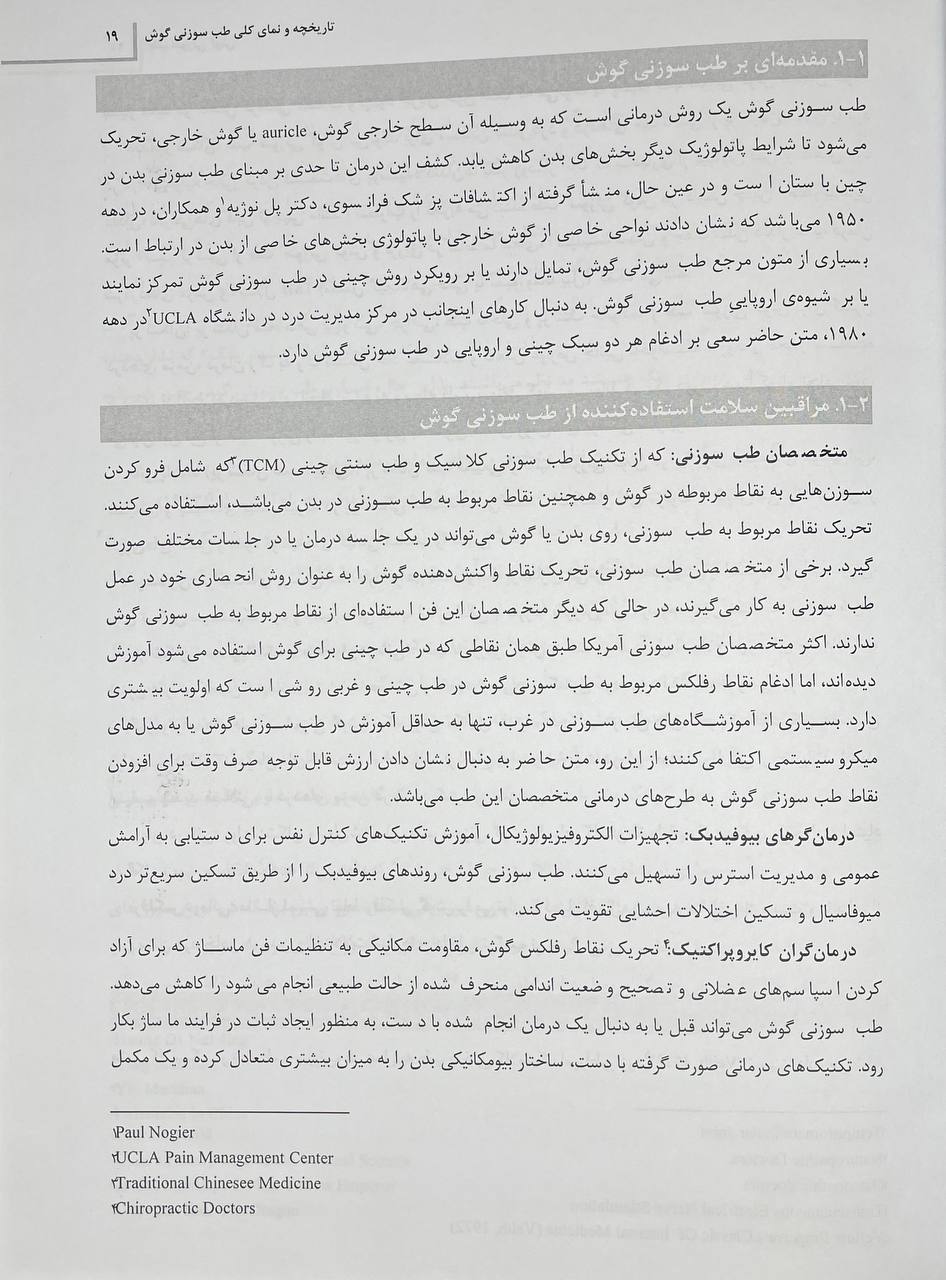 تاریخچه و نمای کلی طب سوزنی گوش ۱۹
۱-۱. مقدمه‌ای بر طب سوزنی گوش
طب سوزنی گوش یک روش درمانی است که به وسیله آن سطح خارجی گوش، auricle یا گوش خارجی، تحریک
می‌شود تا شرایط پاتولوژیک دیگر بخش‌های بدن کاهش یابد. کشف این درمان تا حدی بر مبنای طب سوزنی بدن در
چین باستان است و در عین حال، منشأ گرفته از اکتشافات پزشک فرانسوی، دکتر پل نوژیه۱ و همکاران، در دهه
۱۹۵۰ می‌باشد که نشان دادند نواحی خاصی از گوش خارجی با پاتولوژی بخش‌های خاصی از بدن در ارتباط است.
بسیاری از متون مرجع طب سوزنی گوش، تمایل دارند یا بر رویکرد روش چینی در طب سوزنی گوش تمرکز نمایند
یا بر شیوه‌ی اروپایی طب سوزنی گوش. به دنبال کارهای اینجانب در مرکز مدیریت درد در دانشگاه UCLA۲ در دهه
۱۹۸۰، متن حاضر سعی بر ادغام هر دو سبک چینی و اروپایی در طب سوزنی گوش دارد.
۱-۲. مراقبین سلامت استفاده‌کننده از طب سوزنی گوش
متخصصان طب سوزنی: که از تکنیک طب سوزنی کلاسیک و طب سنتی چینی (TCM)۳ که شامل فرو کردن
سوزن‌هایی به نقاط مربوطه در گوش و همچنین نقاط مربوط به طب سوزنی در بدن می‌باشد، استفاده می‌کنند.
تحریک نقاط مربوط به طب سوزنی، روی بدن یا گوش می‌تواند در یک جلسه درمان یا در جلسات مختلف صورت
گیرد. برخی از متخصصان طب سوزنی، تحریک نقاط واکنش‌دهنده گوش را به عنوان روش انحصاری خود در عمل
طب سوزنی به کار می‌گیرند، در حالی که دیگر متخصصان این فن استفاده‌ای از نقاط مربوط به طب سوزنی گوش
ندارند. اکثر متخصصان طب سوزنی آمریکا طبق همان نقاطی که در طب چینی برای گوش استفاده می‌شود آموزش
دیده‌اند، اما ادغام نقاط رفلکس مربوط به طب سوزنی گوش در طب چینی و غربی روشی است که اولویت بیشتری
دارد. بسیاری از آموزشگاه‌های طب سوزنی در غرب، تنها به حداقل آموزش در طب سوزنی گوش یا به مدل‌های
میکروسیستمی اکتفا می‌کنند؛ از این رو، متن حاضر به دنبال نشان دادن ارزش قابل توجه صرف وقت برای افزودن
نقاط طب سوزنی گوش به طرح‌های درمانی متخصصان این طب می‌باشد.
درمان‌گرهای بیوفیدبک: تجهیزات الکتروفیزیولوژیکال، آموزش تکنیک‌های کنترل نفس برای دستیابی به آرامش
عمومی و مدیریت استرس را تسهیل می‌کنند. طب سوزنی گوش، روندهای بیوفیدبک را از طریق تسکین سریع‌تر درد
میوفاسیال و تسکین اختلالات احشایی تقویت می‌کند.
درمان‌گران کایروپراکتیک:۴ تحریک نقاط رفلکس گوش، مقاومت مکانیکی به تنظیمات فن ماساژ که برای آزاد
کردن اسپاسم‌های عضلانی و تصحیح وضعیت اندامی منحرف شده از حالت طبیعی انجام می‌شود را کاهش می‌دهد.
طب سوزنی گوش می‌تواند قبل یا به دنبال یک درمان انجام شده با دست، به منظور ایجاد ثبات در فرایند ماساژ بکار
رود. تکنیک‌های درمانی صورت گرفته با دست، ساختار بیومکانیکی بدن را به میزان بیشتری متعادل کرده و یک مکمل
۱Paul Nogier
۲UCLA Pain Management Center
۳Traditional Chinesee Medicine
۴Chiropractic Doctors